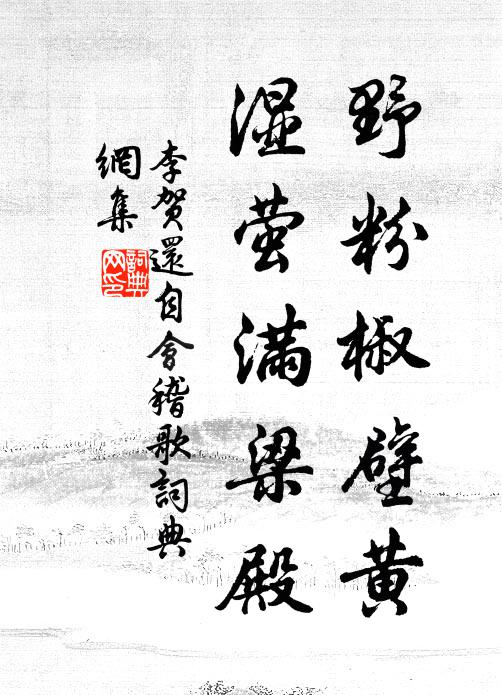 野粉椒壁黄
湿萤满梁殿
李贺還自會稽歌詞典
網集
詞典
网印